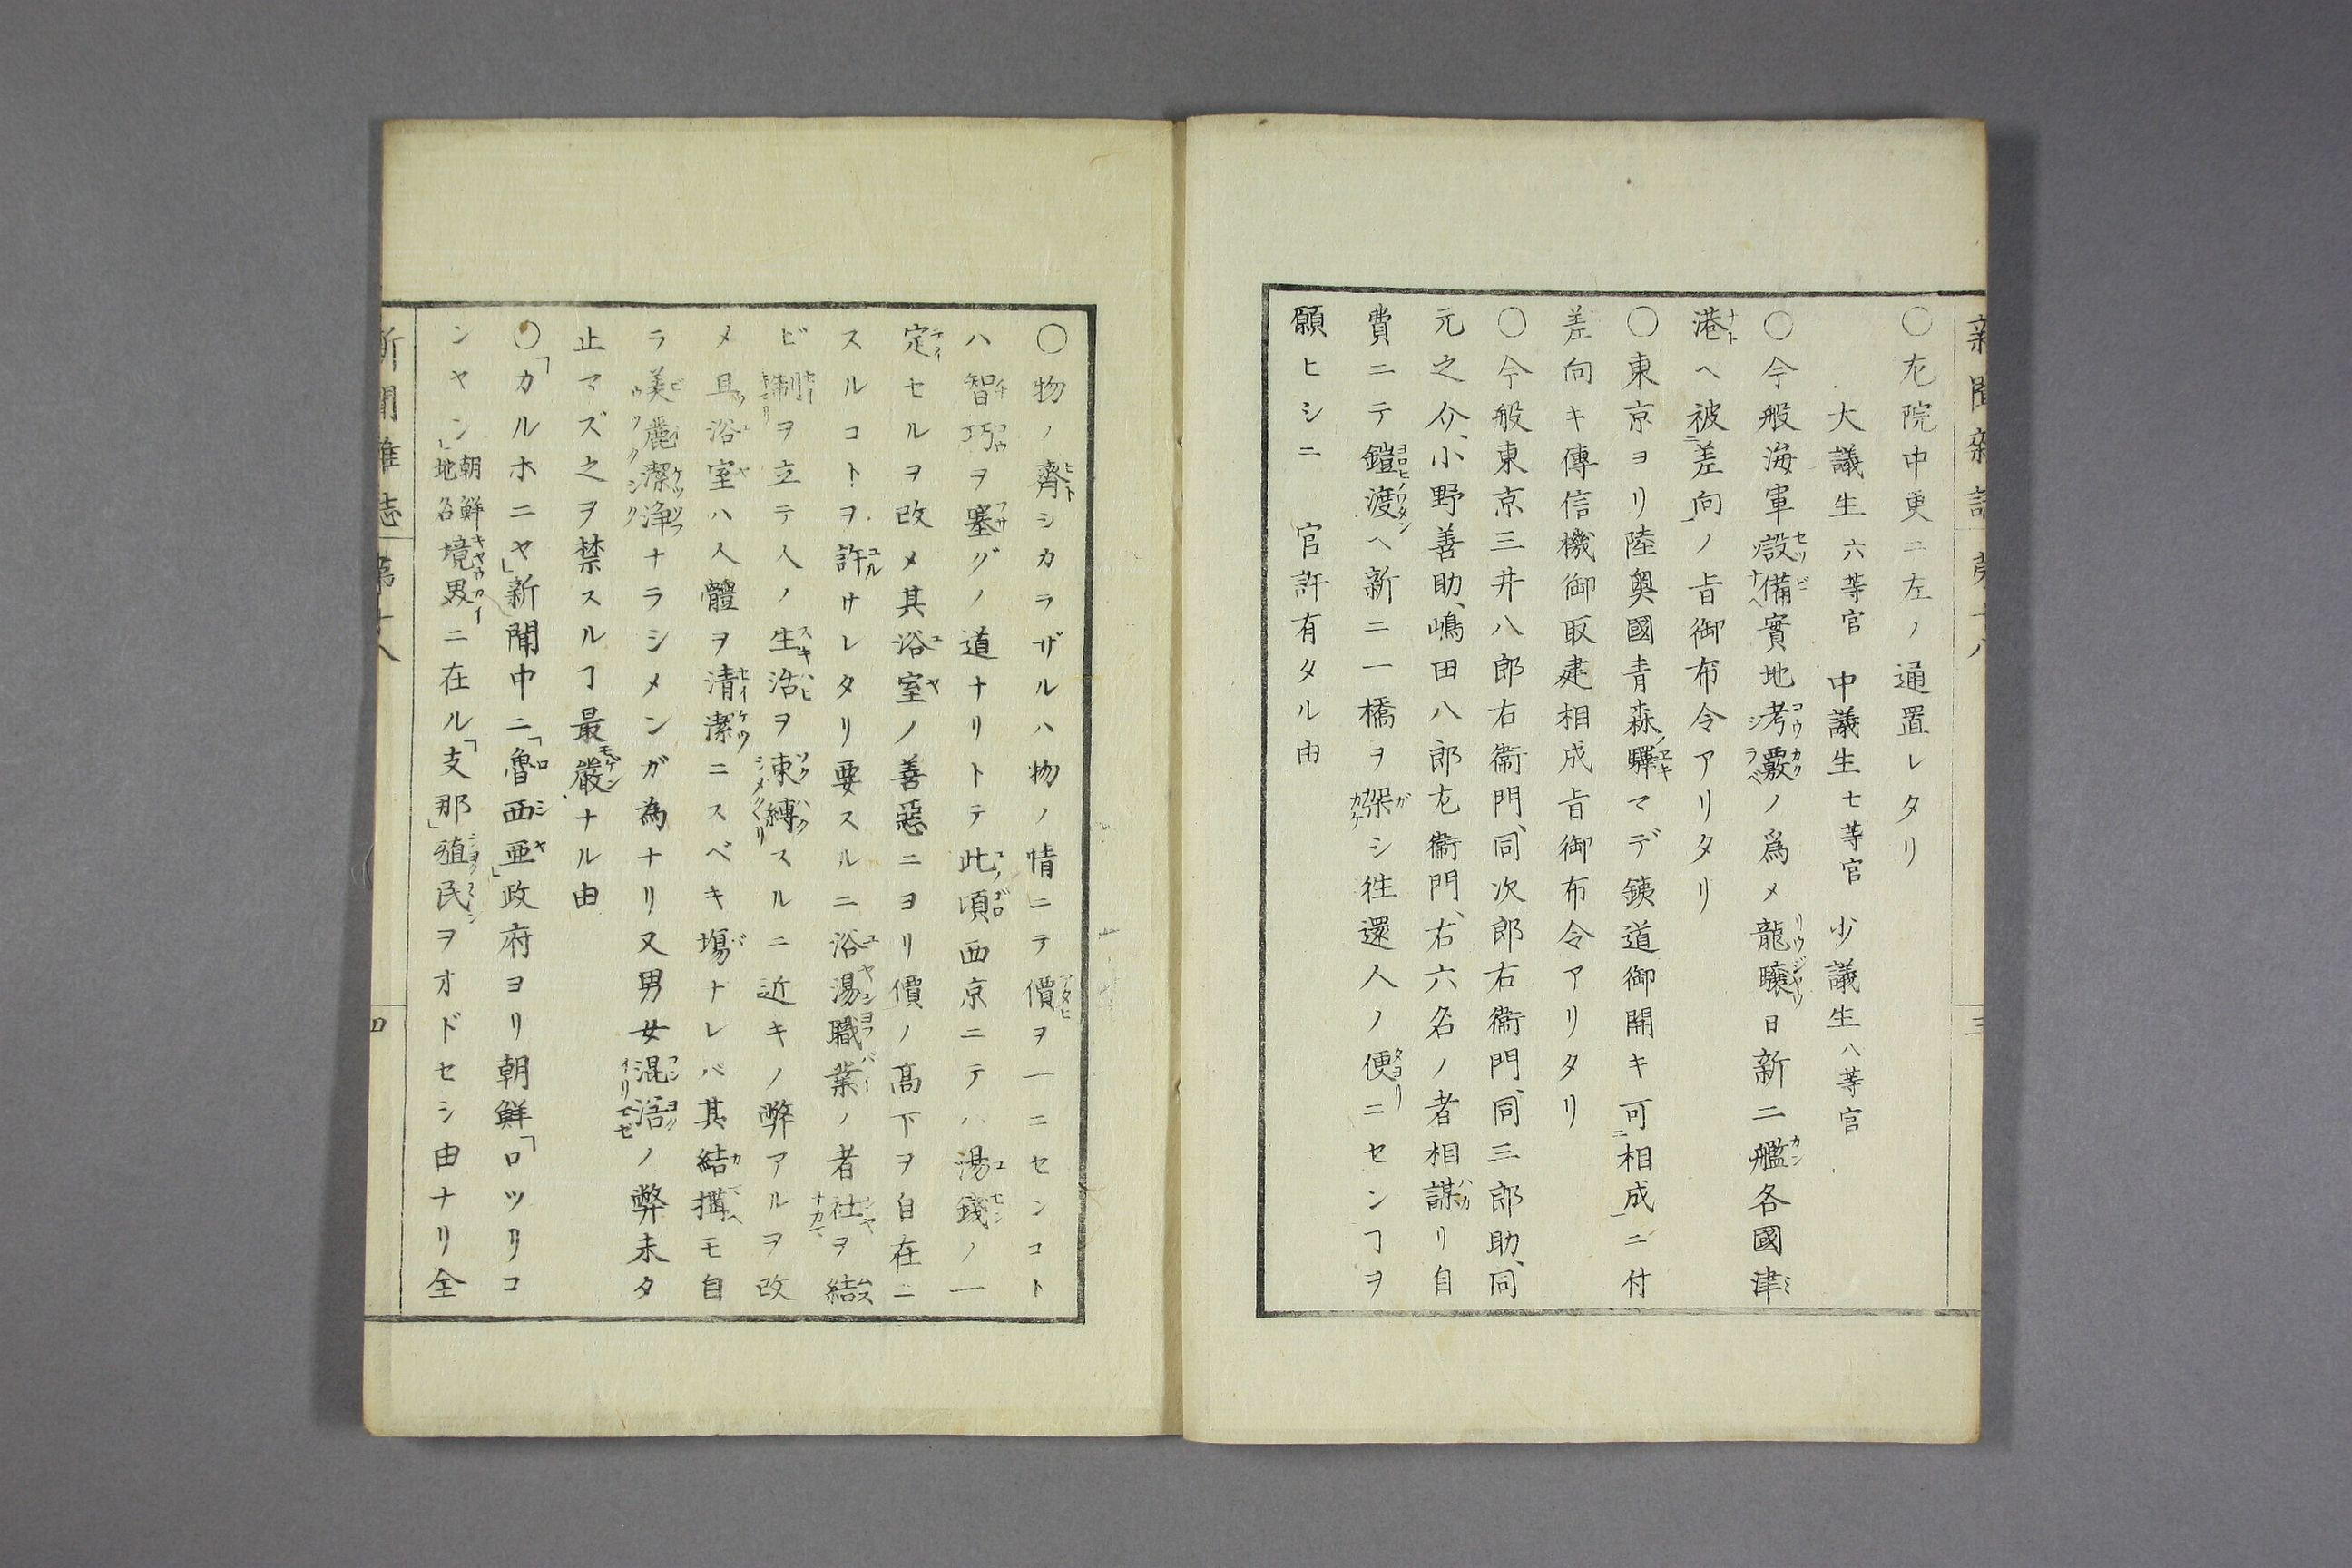 〇左院中更ニ左ノ通置レタリ
大議生六等官　中議生七等官　少議生八等官
〇今般海軍設備實地考覈ノ爲メ龍驤日新二艦各國津
港ヘ被差向ノ旨御布令アリタリ
〇東京ヨリ陸奥國青森驛マデ銕道御開キ可相成ニ付
差向キ傳信機御取建相成旨御布令アリタリ
〇今般東京三井八郎右衞門、同次郎右衞門、同三郎助、同
元之介、小野善助、嶋田八郎左衞門、右六名ノ者相謀リ自
費ニテ鎧渡ヘ新ニ一橋ヲ架シ徃還人ノ便ニセンヿヲ
願ヒシニ　官許有タル由
〇物ノ齊シカラザルハ物ノ情ニテ價ヲ一ニセンコト
ハ智巧ヲ塞グノ道ナリトテ此頃西京ニテハ湯錢ノ一
定セルヲ改メ其浴室ノ善惡ニヨリ價ノ髙下ヲ自在ニ
スルコトヲ許サレタリ要スルニ浴湯職業ノ者社ヲ結
ビ制ヲ立テ人ノ生活ヲ束縛スルニ近キノ弊アルヲ改
メ且浴室ハ人體ヲ清潔ニスベキ塲ナレバ其結搆モ自
ラ美麗潔淨ナラシメンガ為ナリ又男女混浴ノ弊未タ
止マズ之ヲ禁スルヿ最嚴ナル由
〇「カルホニヤ」新聞中ニ「魯西亜」政府ヨリ朝鮮「ロツリコ
ンヤン」朝鮮地名境界ニ在ル「支那」殖民ヲオドセシ由ナリ全
新聞雜誌　第十八
四
三